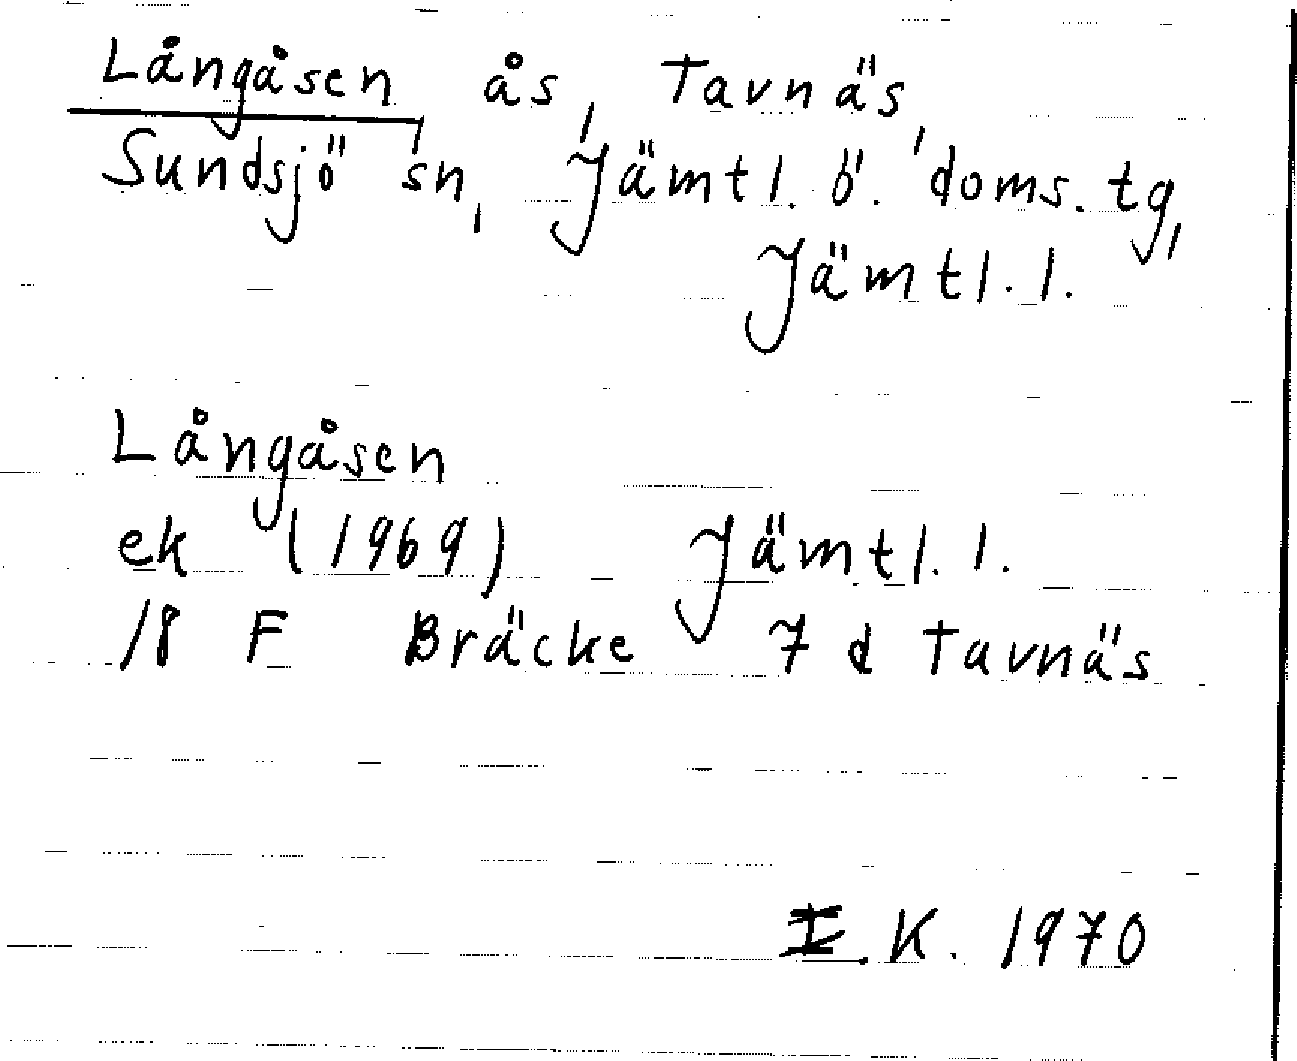 Långåsen ås, Tavnäs,
Sundsjö sn, Jämtl. ö. doms. tg,
Jämtl. l.
Långåsen
ek (1969) Jämtl. l.
18 F Bräcke 7 d Tavnäs
I.K. 1970